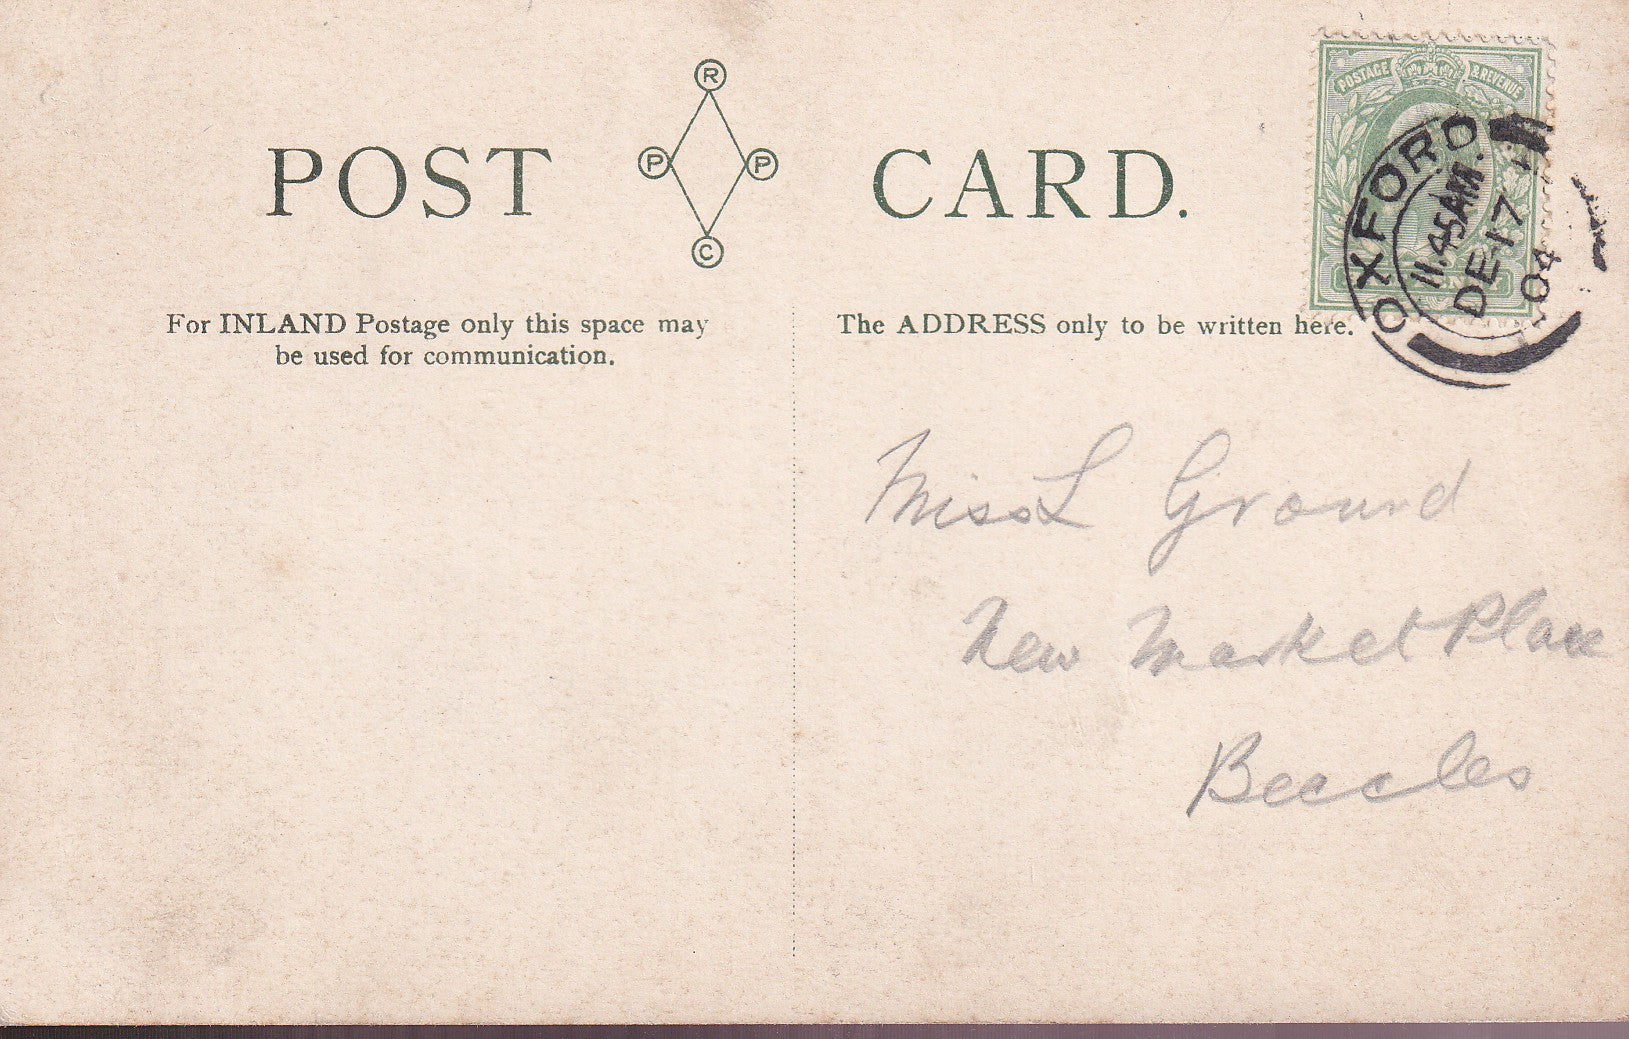 POST CARD.
R
P P
C
POSTAGE & REVENUE
OXFORD
11.45AM.
DE 17
04
For INLAND Postage only this space may
be used for communication.
The ADDRESS only to be written here.
Miss L Ground
New Market Place
Beccles